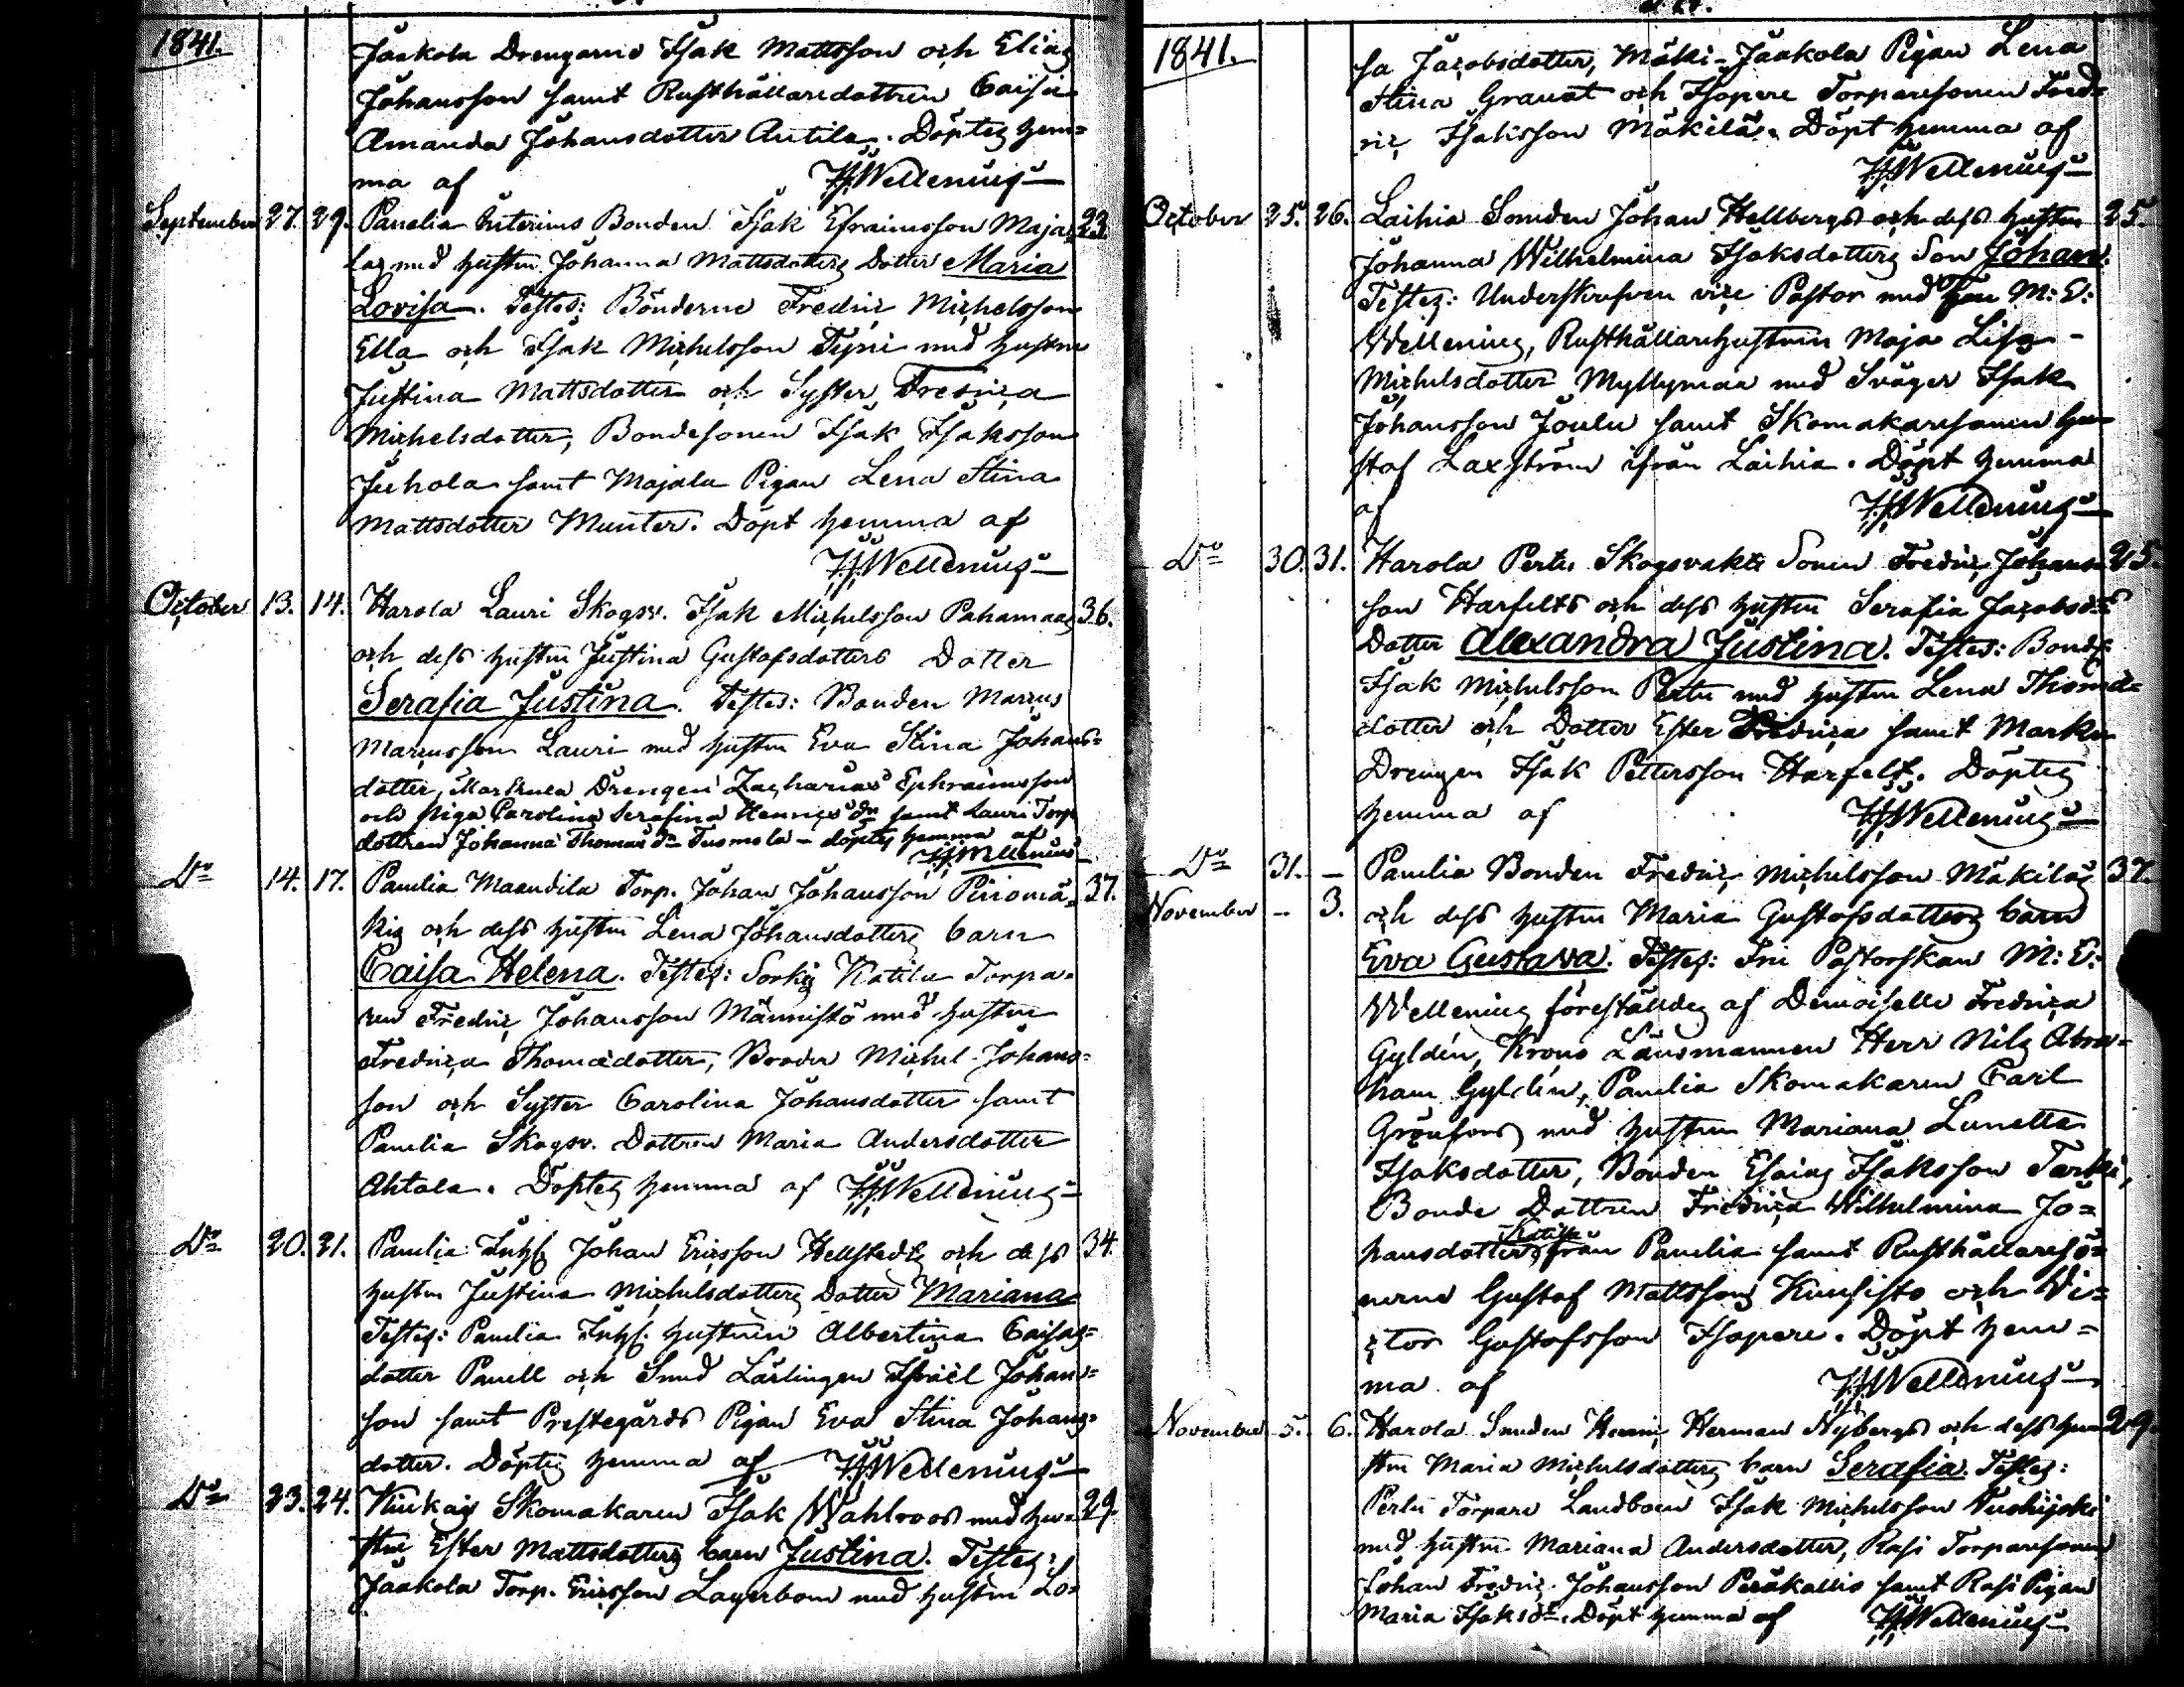 1841.
Jaakola Drengarne Isak Mattsson och Elias
Johansson samt Rusthållaredottren Caisa
Amanda Johansdotter Antila. Döptes hem=
ma af HJWellenius
September 27. 29. Panelia Interims Bonden Isak Efraimsson Maja= 23.
las med hustru Johanna Mattsdotters Dotter Maria
Lovisa. Testes: Bönderne Fredric Michelsson
Ella och Isak Michelsson Typi med hustru
Justina Mattsdotter och Syster Fredrica
Michelsdotter, Bondesonen Isak Isaksson
Juhola samt Majala Pigan Lena Stina
Mattsdotter Munter. Döpt hemma af
HJWellenius
October 13. 14. Harola Lauri Skogsv. Isak Michelsson Pahamaas 36.
och dess hustru Justina Gustafsdotters Dotter
Serafia Justina. Testes: Bonden Marcus
Marcusson Lauri med hustru Eva Stina Johans=
dotter, Drengen Zacharias Ephraimsson
och Piga Carolina Serafina Henricsdr samt Lauri Torp.
dottren Johanna Thomasdr Tuomola – döptes hemma af
HJWellenius
Do 14. 17. Panelia Maandila Torp. Johan Johansson Piriomä= 37.
kis och dess hustru Lena Johansdotters barn
Caisa Helena. Testes: Sorkis Katila Torpa=
ren Fredric Johansson Männistö med hustru
Fredrica Thomædotter, Broder Michel Johans=
son och Syster Carolina Johansdotter samt
Panelia Skogsv. Dottren Maria Andersdotter
Ahtola. Döptes hemma af HJWellenius
Do 20. 21. Panelia Inhs. Johan Ericsson Hellstedts och dess 34.
hustru Justina Michelsdotters Dotter Mariana
Testes: Panelia Inhs. hustrun Albertina Caisas=
dotter Panell och Smed Lärlingen Israël Johans=
son samt Prestegårds Pigan Eva Stina Johans=
dotter. Döptes hemma af HJWellenius
Do 23. 24. Kiukais Skomakaren Isak Wahlroos med hu= 29.
stru Ester Mattsdotters barn Justina. Testes:
Jaakola Torp. Ericsson Lagerbom med hustru Lo=
1841.
sa Jacobsdotter, Mäki-Jaakola Pigan Lena
Stina Granat och Isopere Torparesonen Fred=
ric Isaksson Mäkilä. Döpt hemma af
HJWellenius
October 25. 26. Laihia Smeden Johan Hellbergs och dess hustru 25.
Johanna Wilhelmina Isaksdotters Son Johan.
Testes: Underskrifven vice Pastor med Fru M: E:
Wellenius, Rusthållarehustrun Maja Lisa
Michelsdotter Myllymaa med Svåger Isak
Johansson Joulu samt Skomakaresonen Gu=
staf Laxström ifrån Laihia. Döpt hemma
af HJWellenius
Do 30. 31. Harola Pertu Skogsvakts Sonen Fredric Johans= 25.
son Harfelts och dess hustru Serafia Jacobsdrs
Dotter Alexandra Justina. Testes: Bond.
Isak Michelsson Pertu med hustru Lena Thomæ=
dotter och Dotter Ester Fredrica samt
Drengen Isak Pettersson Harfelt. Döptes
hemma af HJWellenius
Do 31. – Panelia Bonden Fredric Michelsson Mäkiläs 37.
November – 3. och dess hustru Maria Gustafsdotters barn
Eva Gustava. Testes: Fru Pastorskan M: E:
Wellenius föreställdes af Demoiselle Fredrica
Gyldén, Krono Länsmannen Herr Nils Abra=
ham Gyldén, Panelia Skomakaren Carl
Grönfors med hustru Mariana Lunetta
Isaksdotter, Bonden Esaias Isaksson Tarki,
Bonde Dottren Fredrica Wilhelmina Jo=
hansdotter Katila från Panelia samt Rusthållaresö=
nerne Gustaf Mattsson Kuusisto och Vi=
ctor Gustafsson Isopere. Döpt hem=
ma af HJWellenius
November 5. 6. Harola Smeden Henric Herman Nybergs och dess hu= 29.
stru Maria Michelsdotters barn Serafia. Testes:
Pertu Torpare Landboen Isak Michelsson
med hustru Mariana Andersdotter, Rasi Torparesonen
Johan Fredric Johansson Peräkallio samt Rasi Pigan
Maria Isaksdr. Döpt hemma af HJWellenius